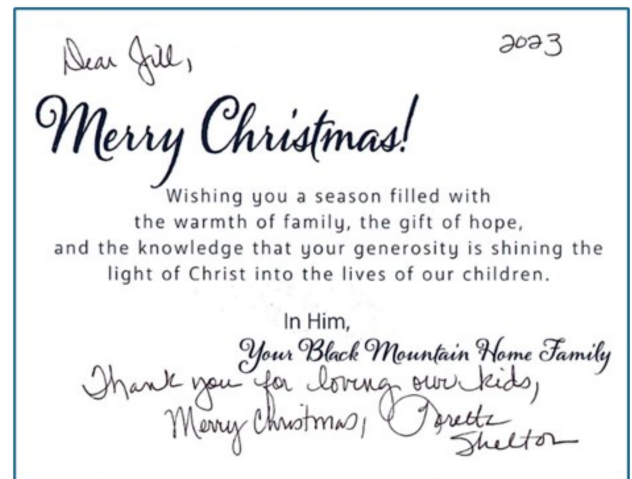 Dear Jill,
2023
Merry Christmas!
Wishing you a season filled with
the warmth of family, the gift of hope,
and the knowledge that your generosity is shining the
light of Christ into the lives of our children.
In Him,
Your Black Mountain Home Family
Thank you for loving our kids,
Merry Christmas, Loretta
Shelton